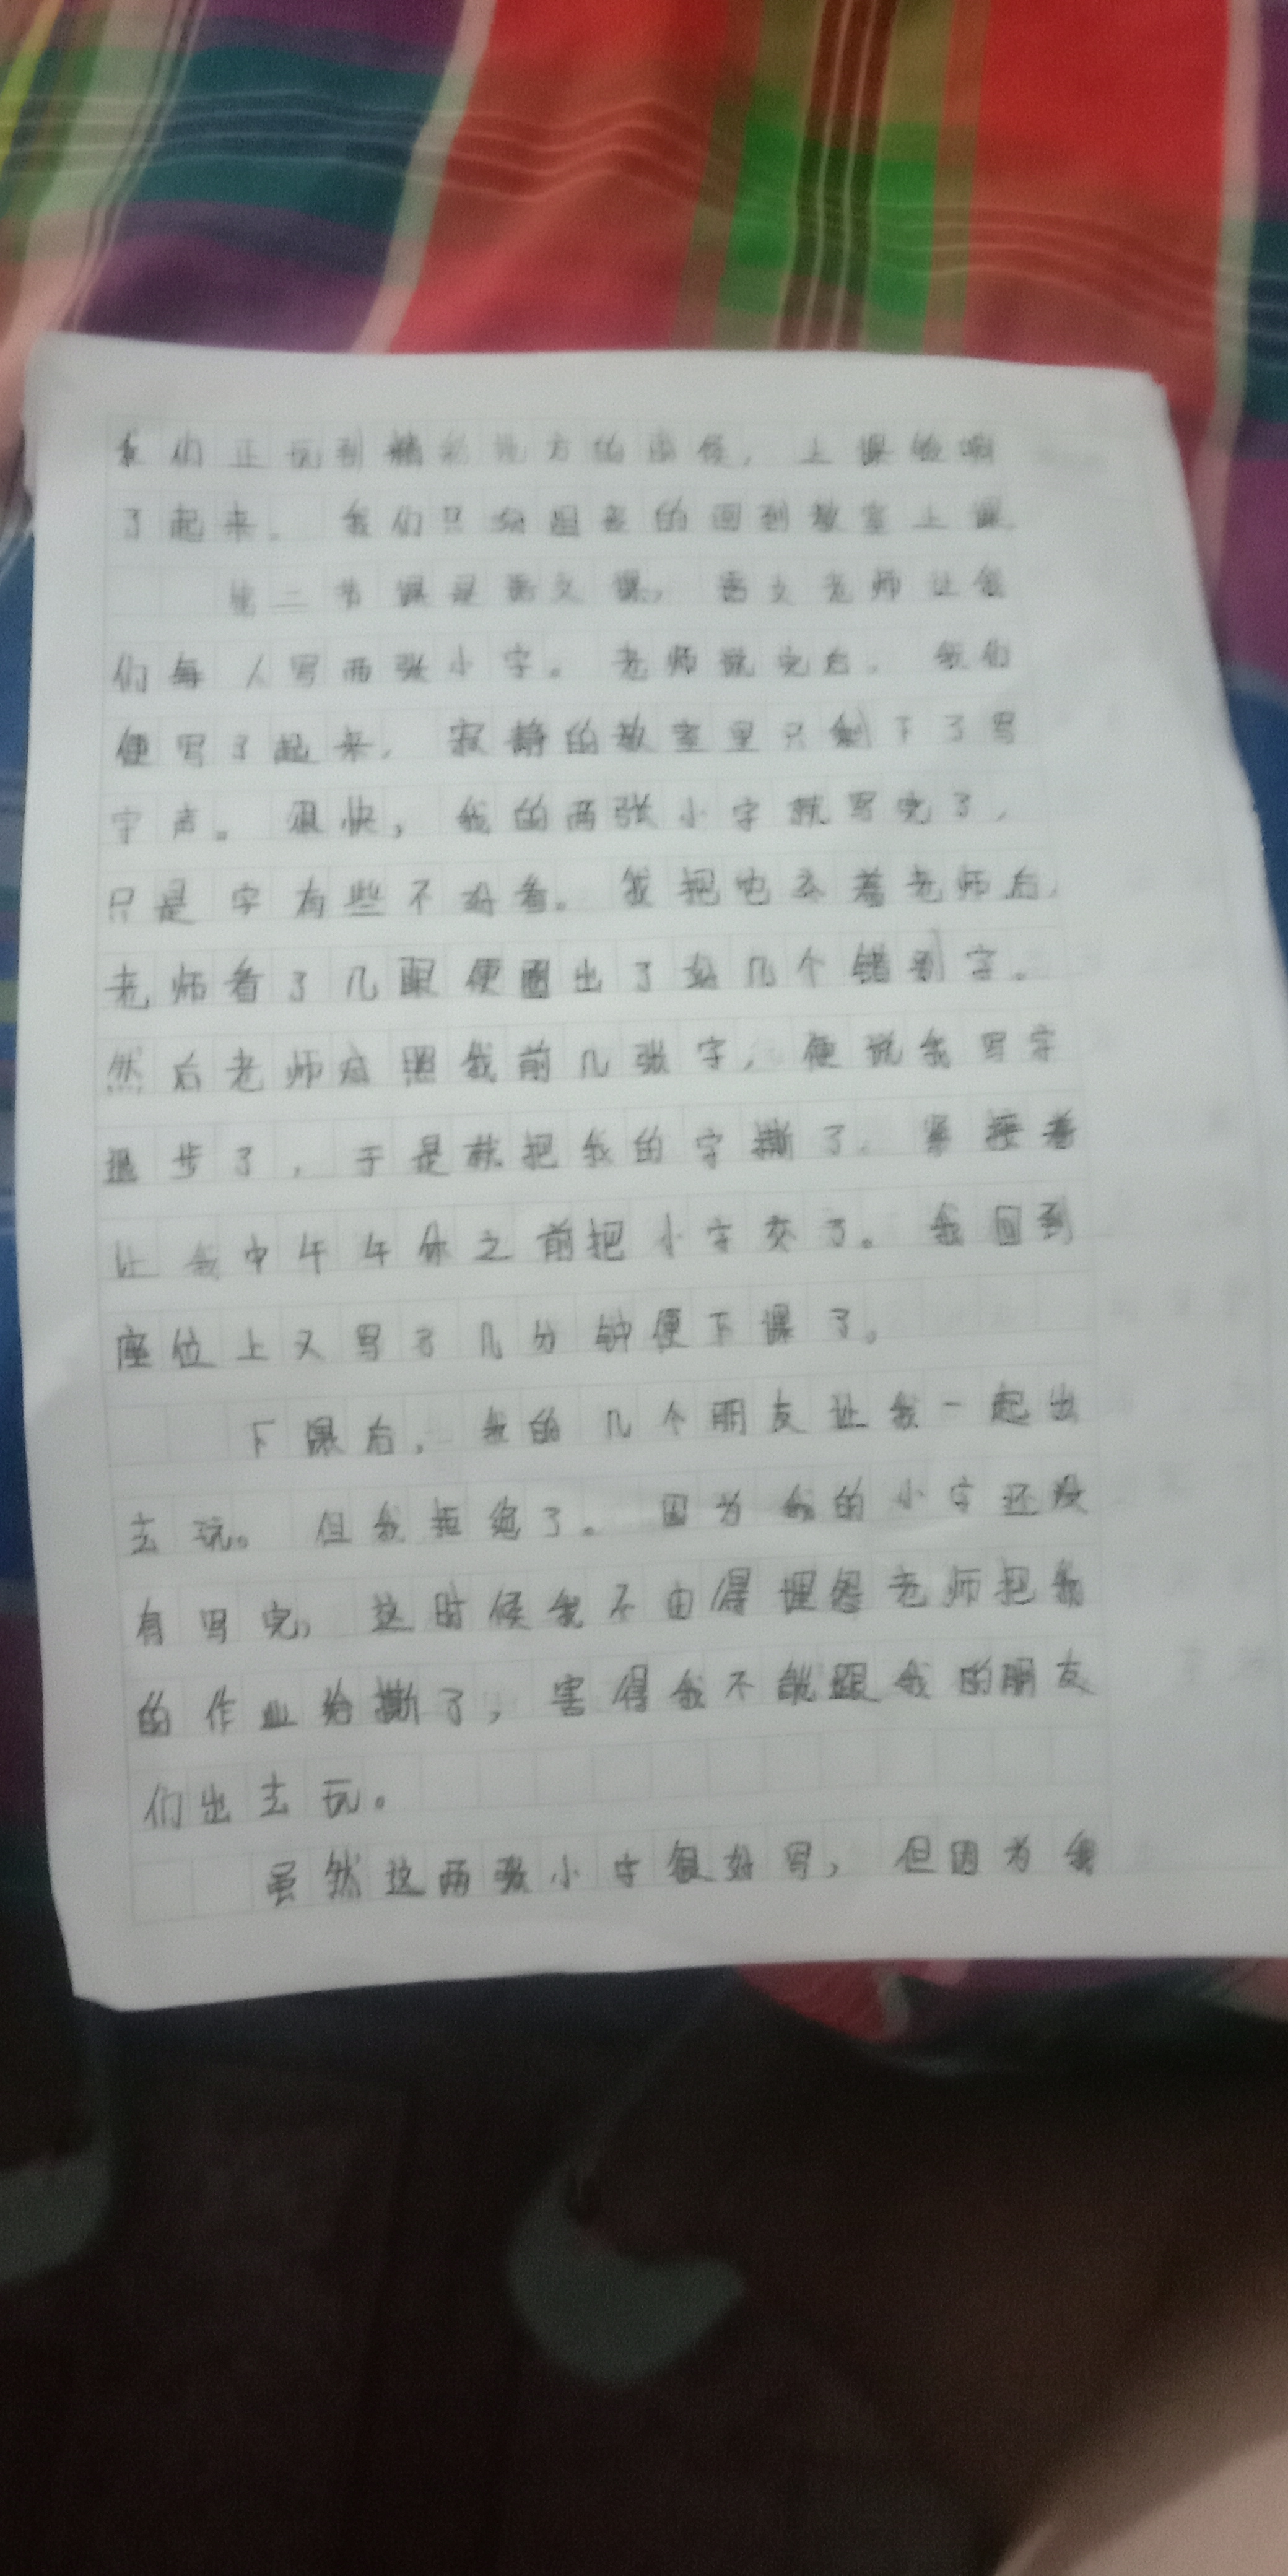 我们正玩到精彩地方的时候，上课铃响
了起来。我们只匆的回到教室上课
第二节课是语文课，语文老师让我
们每人写两张小字。老师说完后，我们
便写了起来，寂静的教室里只剩下了写
字声。很快，我的两张小字就写完了，
只是字有些不好看。我把它交着老师后，
老师看了几眼便圈出了好几个错别字。
然后老师照我前几张字，便说我写字
退步了，于是就把我的字撕了。紧接着
让我中午午休之前把小字交了。我回到
座位上又写了几分钟便下课了。
下课后，我的几个朋友让我一起出
去玩。但我拒绝了。因为我的小字还没
有写完，这时候我不由得埋怨老师把我
的作业给撕了，害得我不能跟我的朋友
们出去玩。
虽然这两张小字很好写，但因为我